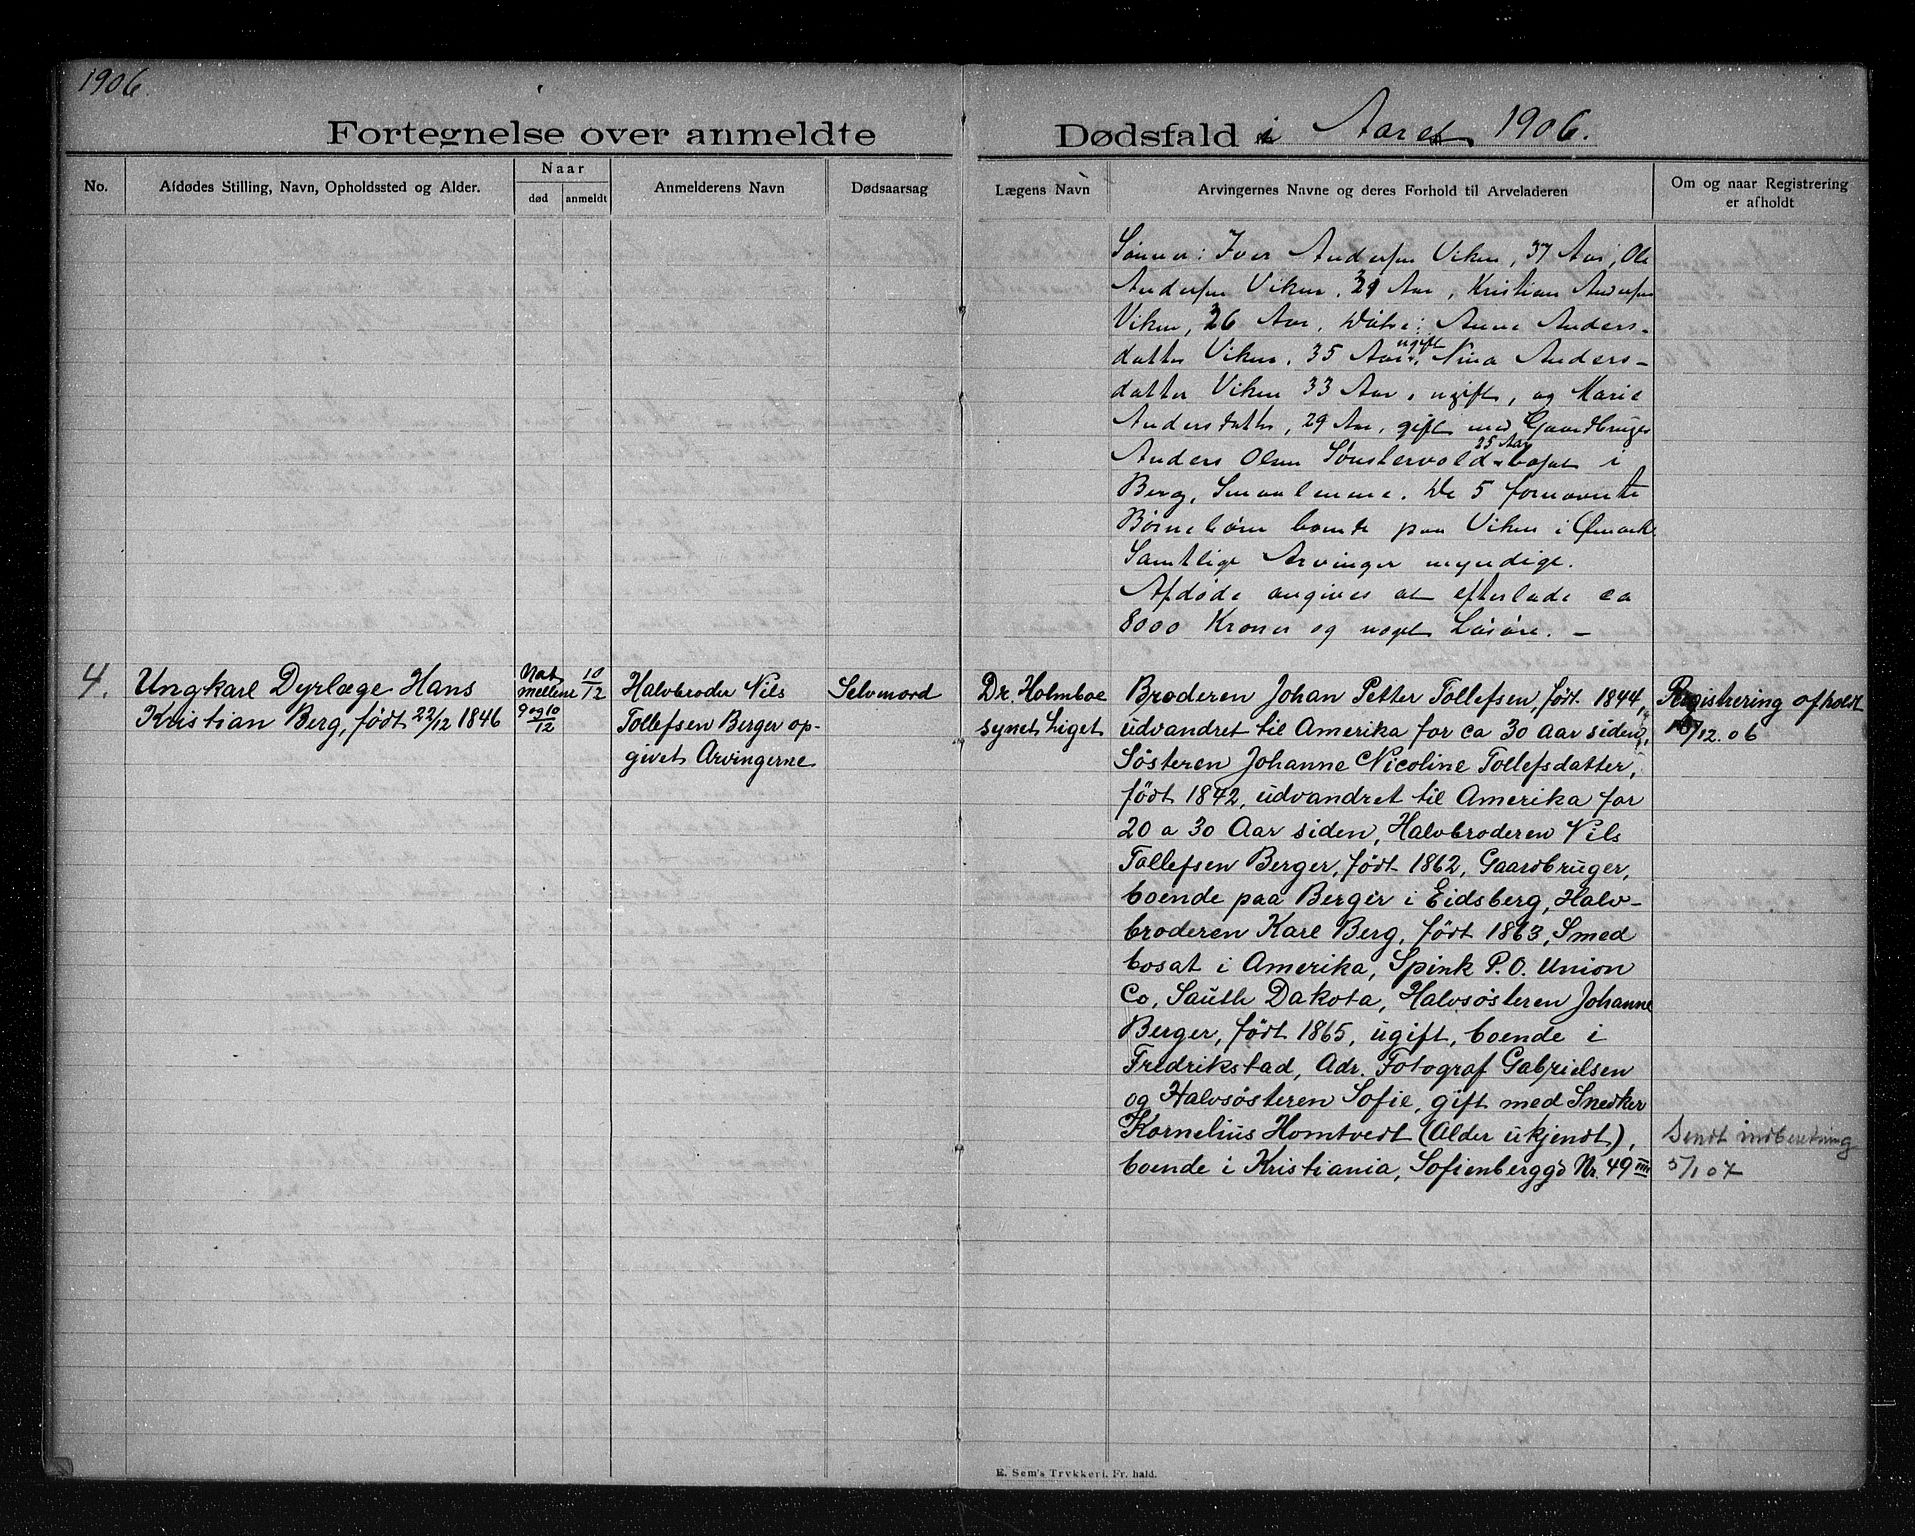 1906.
Fortegnelse over anmeldte Dødsfald i Aaret 1906.
No.
Afdødes Stilling, Navn, Opholdssted og Alder.
Naar
død
anmeldt
Anmelderens Navn
Dødsaarsag
Lægens Navn
Arvingernes Navne og deres Forhold til Arveladeren
Om og naar Registrering
er afholdt
Sønner: Iver Andersen Viken, 37 Aar, Ole
Andersen Viken, Aar, Kristian Andersen
Viken, 26 Aar, Døtre: Anne Anders-
datter Viken, 35 Aar, ugift, Nina Anders-
datter Viken 33 Aar, ugift, og Marie
Andersdatter, 29 Aar, gift med Gaardbruger
Anders Olsen Sønstervold 25 Aar bosat i
Berg, Smaalenene. De 5 fornævnte
Børnebørn boende paa Viken i Ømark.
Samtlige Arvinger myndige.
Afdøde angives at efterlade ca
8000 Kroner og noget Løsøre. –
4.
Ungkarl Dyrlæge Hans
Kristian Berg, født 22/12 1846
Nat
mellem
9 og 10/12
10/12
Halvbroder Nils
Tollefsen Berger op-
givet Arvingerne
Selvmord
Dr. Holmboe
synet Liget
Broderen Johan Petter Tollefsen, født 1844,
udvandret til Amerika for ca 30 Aar siden,
Søsteren Johanne Nicoline Tollefsdatter,
født 1842, udvandret til Amerika for
20 a 30 Aar siden, Halvbroderen Nils
Tollefsen Berger, født 1862, Gaardbruger,
boende paa Berger i Eidsberg, Halv-
broderen Karl Berg, født 1863, Smed
bosat i Amerika, Spink P.O. Union
Co, Sauth Dakota, Halvsøsteren Johanne
Berger, født 1865, ugift, boende i
Fredrikstad, Adr. Fotograf Gabrielsen
og Halvsøsteren Sofie, gift med Snedker
Kornelius Homtvedt (Alder ukjendt),
boende i Kristiania, Sofienberggd Nr. 49 III
Registrering afholdt
/12.06
Sendt indberetning
5/1 07
E. Sem's Trykkeri, Fr. hald.